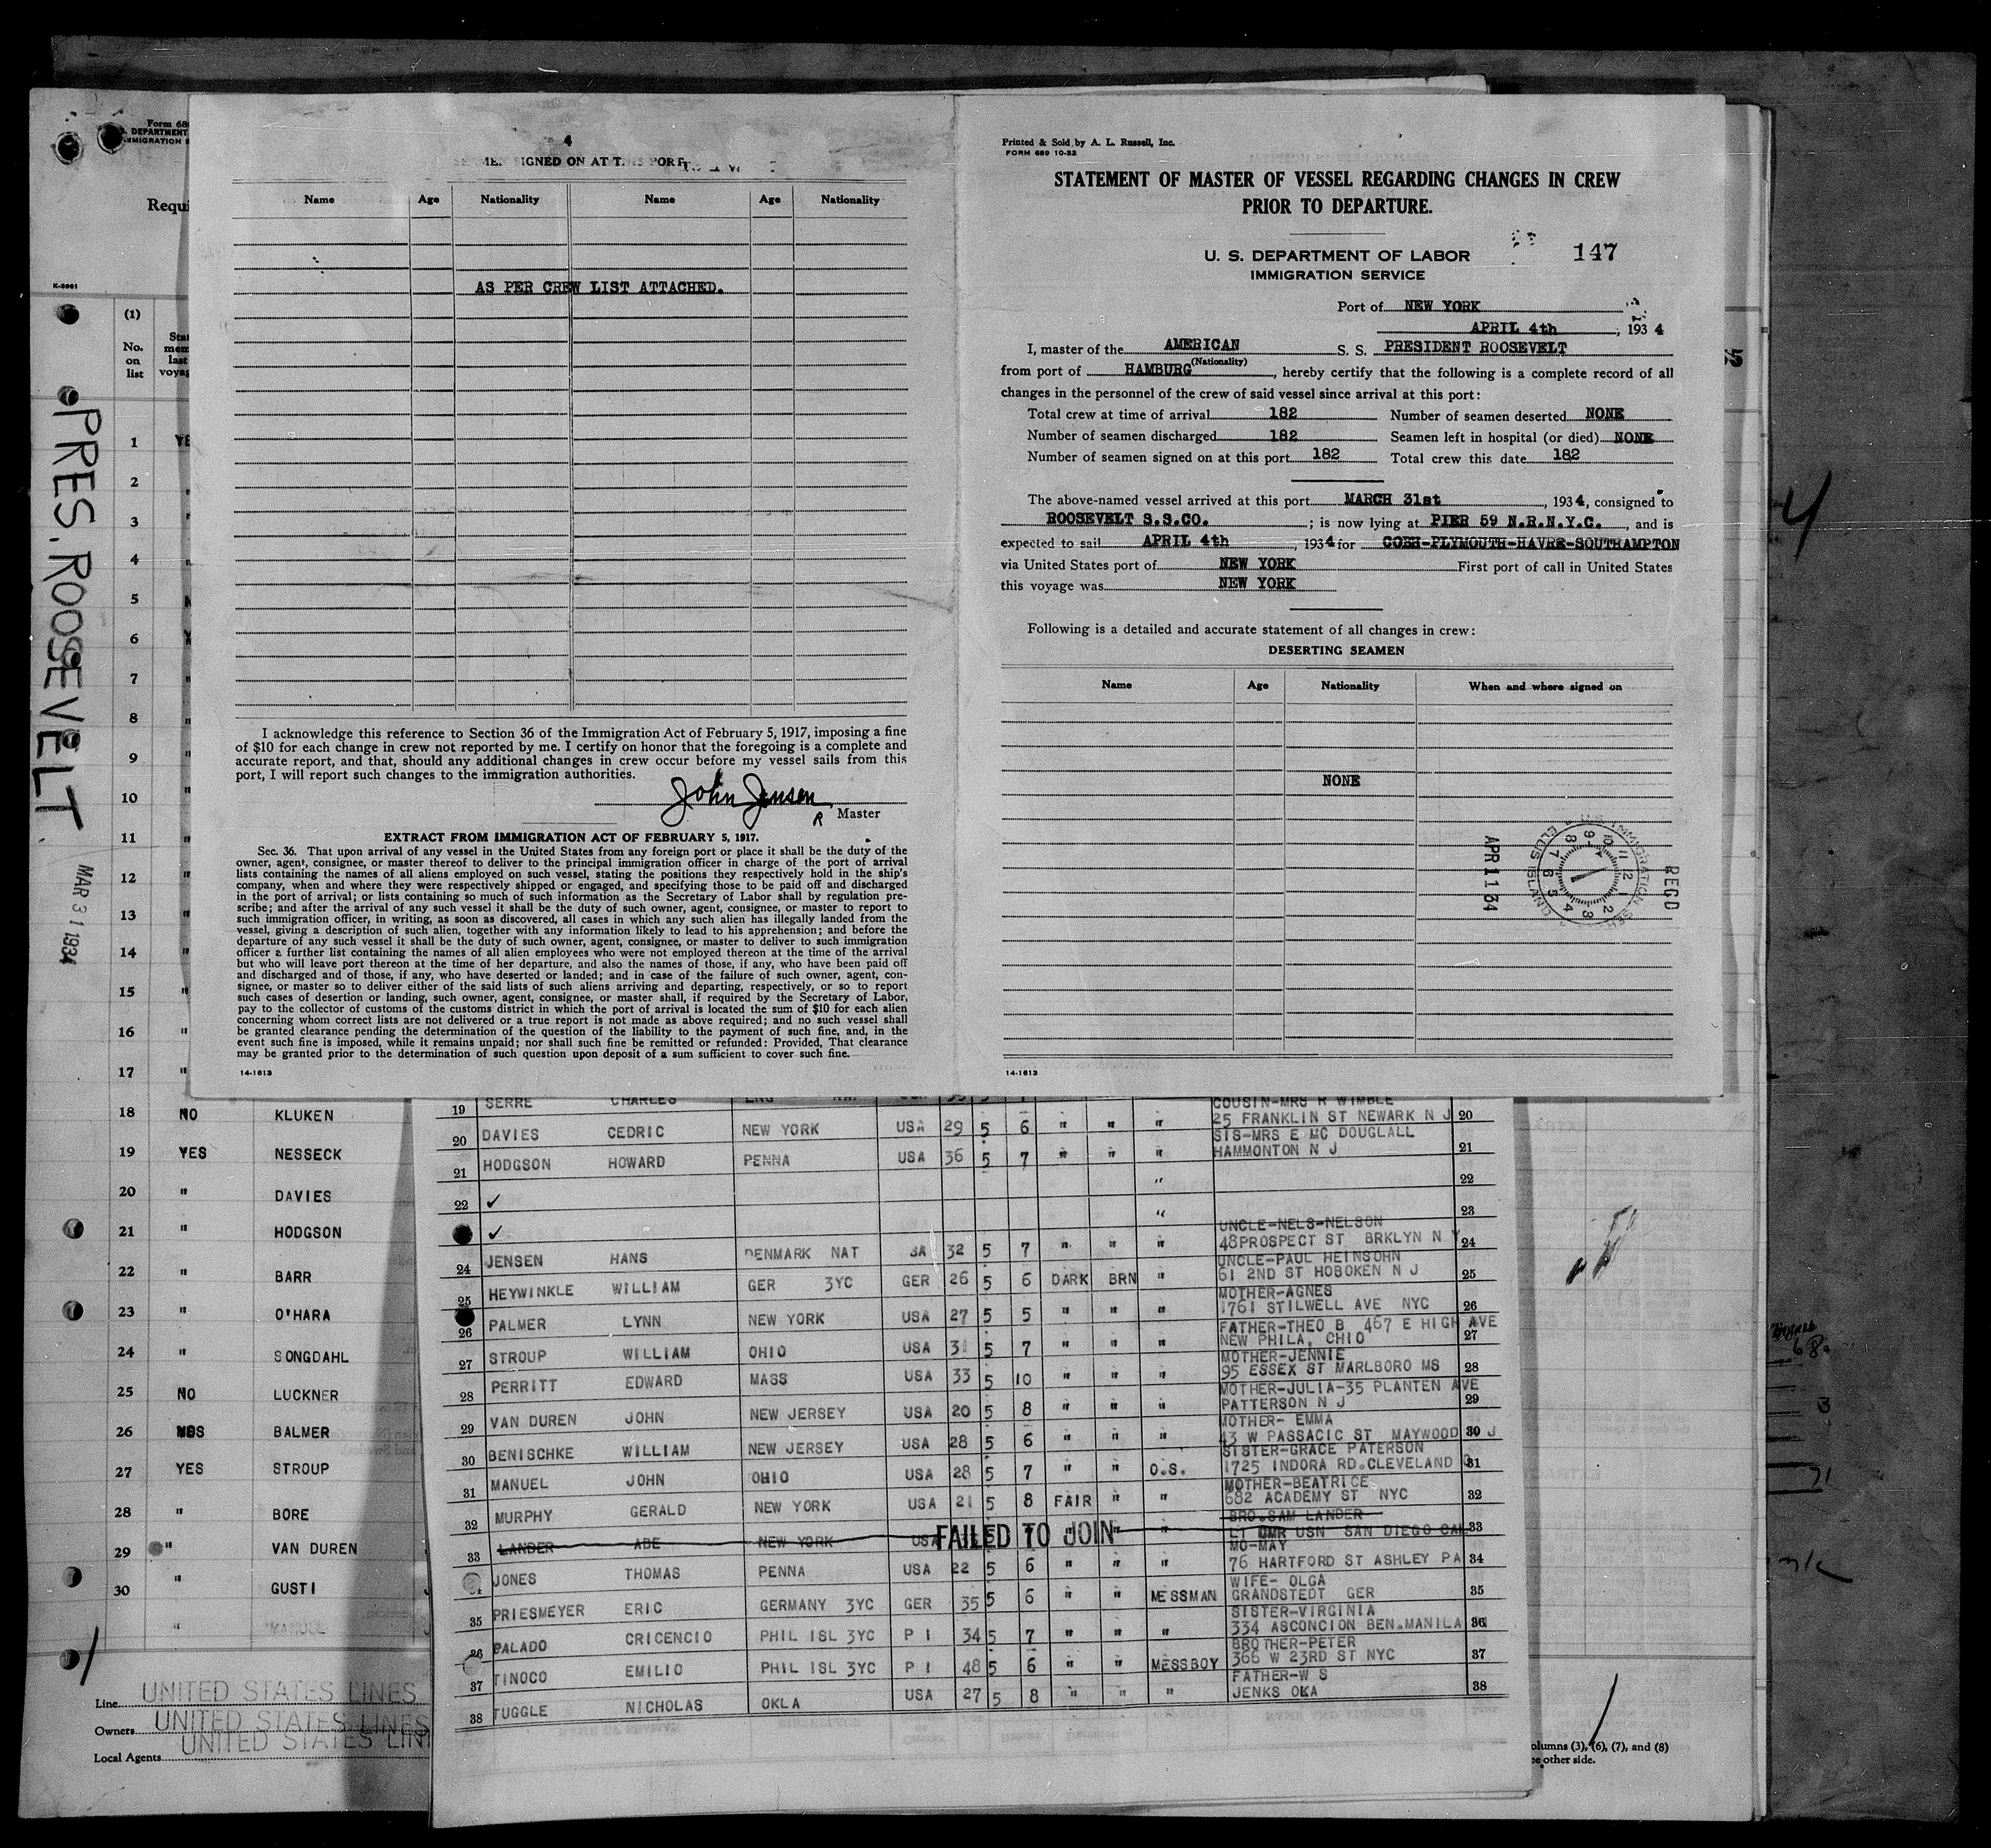 Form 68
DEPARTMENT
IMMIGRATION S
Requi
K-5961
(1)
No.
on
list
Stat
men
last
voyag
PRES. ROOSEVELT
MAR 31 1934
1 YE
2 "
3 "
4 "
5 N
6 Y
7 "
8 "
9 "
10 "
11 "
12 "
13 "
14 "
15 "
16 "
17 "
18 NO KLUKEN
19 YES NESSECK
20 " DAVIES
21 " HODGSON
22 " BARR
23 " O'HARA
24 " SONGDAHL
25 NO LUCKNER
26 BALMER
27 YES STROUP
28 " BORE
29 " VAN DUREN
30 " GUSTI
" MANUEL
Line UNITED STATES LINES
Owners UNITED STATES LINES
Local Agents UNITED STATES LIN
4
SIGNED ON AT PORT
Name Age Nationality Name Age Nationality
AS PER CREW LIST ATTACHED.
I acknowledge this reference to Section 36 of the Immigration Act of February 5, 1917, imposing a fine
of $10 for each change in crew not reported by me. I certify on honor that the foregoing is a complete and
accurate report, and that, should any additional changes in crew occur before my vessel sails from this
port, I will report such changes to the immigration authorities.
John Jensen
R Master
EXTRACT FROM IMMIGRATION ACT OF FEBRUARY 5, 1917.
Sec. 36. That upon arrival of any vessel in the United States from any foreign port or place it shall be the duty of the
owner, agent, consignee, or master thereof to deliver to the principal immigration officer in charge of the port of arrival
lists containing the names of all aliens employed on such vessel, stating the positions they respectively hold in the ship's
company, when and where they were respectively shipped or engaged, and specifying those to be paid off and discharged
in the port of arrival; or lists containing so much of such information as the Secretary of Labor shall by regulation pre-
scribe; and after the arrival of any such vessel it shall be the duty of such owner, agent, consignee, or master to report to
such immigration officer, in writing, as soon as discovered, all cases in which any such alien has illegally landed from the
vessel, giving a description of such alien, together with any information likely to lead to his apprehension; and before the
departure of any such vessel it shall be the duty of such owner, agent, consignee, or master to deliver to such immigration
officer a further list containing the names of all alien employees who were not employed thereon at the time of the arrival
but who will leave port thereon at the time of her departure, and also the names of those, if any, who have been paid off
and discharged and of those, if any, who have deserted or landed; and in case of the failure of such owner, agent, con-
signee, or master so to deliver either of the said lists of such aliens arriving and departing, respectively, or so to report
such cases of desertion or landing, such owner, agent, consignee, or master shall, if required by the Secretary of Labor,
pay to the collector of customs of the customs district in which the port of arrival is located the sum of $10 for each alien
concerning whom correct lists are not delivered or a true report is not made as above required; and no such vessel shall
be granted clearance pending the determination of the question of the liability to the payment of such fine, and, in the
event such fine is imposed, while it remains unpaid; nor shall such fine be remitted or refunded: Provided, That clearance
may be granted prior to the determination of such question upon deposit of a sum sufficient to cover such fine.
14-1613
Printed & Sold by A. L. Russell, Inc.
FORM 689 10-32
STATEMENT OF MASTER OF VESSEL REGARDING CHANGES IN CREW
PRIOR TO DEPARTURE.
U. S. DEPARTMENT OF LABOR 147
IMMIGRATION SERVICE
Port of NEW YORK
APRIL 4th, 1934
I, master of the AMERICAN S. S. PRESIDENT ROOSEVELT
(Nationality)
from port of HAMBURG, hereby certify that the following is a complete record of all
changes in the personnel of the crew of said vessel since arrival at this port:
Total crew at time of arrival 182 Number of seamen deserted NONE
Number of seamen discharged 182 Seamen left in hospital (or died) NONE
Number of seamen signed on at this port 182 Total crew this date 182
The above-named vessel arrived at this port MARCH 31st, 1934, consigned to
ROOSEVELT S.S.CO.; is now lying at PIER 59 N.R.N.Y.C., and is
expected to sail APRIL 4th, 1934 for COBH-PLYMOUTH-HAVRE-SOUTHAMPTON
via United States port of NEW YORK First port of call in United States
this voyage was NEW YORK
Following is a detailed and accurate statement of all changes in crew:
DESERTING SEAMEN
Name Age Nationality When and where signed on
NONE
REC'D
U.S. IMMIGRATION SER. ELLIS ISLAND
APR 11 34
14-1613
19 SERRE CHARLES ENG NAT
COUSIN-MRS R WIMBLE
20 DAVIES CEDRIC NEW YORK USA 29 5 6 " " " 25 FRANKLIN ST NEWARK N J 20
SIS-MRS E MC DOUGLALL
21 HODGSON HOWARD PENNA USA 36 5 7 " " " HAMMONTON N J 21
22 ✓ " 22
✓ " 23
UNCLE-NELS-NELSON
24 JENSEN HANS DENMARK NAT SA 32 5 7 " " " 48PROSPECT ST BRKLYN N Y 24
UNCLE-PAUL HEINSOHN
25 HEYWINKLE WILLIAM GER 3YC GER 26 5 6 DARK BRN " 61 2ND ST HOBOKEN N J 25
MOTHER-AGNES
26 PALMER LYNN NEW YORK USA 27 5 5 " " " 1761 STILWELL AVE NYC 26
FATHER-THEO B 467 E HIGH AVE
27 STROUP WILLIAM OHIO USA 31 5 7 " " " NEW PHILA, OHIO 27
MOTHER-JENNIE
28 PERRITT EDWARD MASS USA 33 5 10 " " " 95 ESSEX ST MARLBORO MS 28
MOTHER-JULIA-35 PLANTEN AVE
29 VAN DUREN JOHN NEW JERSEY USA 20 5 8 " " " PATTERSON N J 29
MOTHER- EMMA
30 BENISCHKE WILLIAM NEW JERSEY USA 28 5 6 " " " 43 W PASSACIC ST MAYWOOD 30 J
SISTER-GRACE PATERSON
31 MANUEL JOHN OHIO USA 28 5 7 " " O.S. 1725 INDORA RD.CLEVELAND 31
MOTHER-BEATRICE
32 MURPHY GERALD NEW YORK USA 21 5 8 FAIR " " 682 ACADEMY ST NYC 32
BRO.SAM LANDER
33 LANDER ABE NEW YORK USA FAILED TO JOIN " LT CMR USN SAN DIEGO CAL 33
MO-MAY
JONES THOMAS PENNA USA 22 5 6 " " " 76 HARTFORD ST ASHLEY PA 34
WIFE- OLGA
35 PRIESMEYER ERIC GERMANY 3YC GER 35 5 6 " " MESSMAN GRANDSTEDT GER 35
SISTER-VIRGINIA
36 PALADO CRICENCIO PHIL ISL 3YC P I 34 5 7 " " " 334 ASCONCION BEN.MANILA 36
BROTHER-PETER
37 TINOCO EMILIO PHIL ISL 3YC P I 48 5 6 " " MESSBOY 366 W 23RD ST NYC 37
FATHER-W S
38 TUGGLE NICHOLAS OKLA USA 27 5 8 " " " JENKS OKA 38
olumns (3), (6), (7), and (8)
ee other side.
4